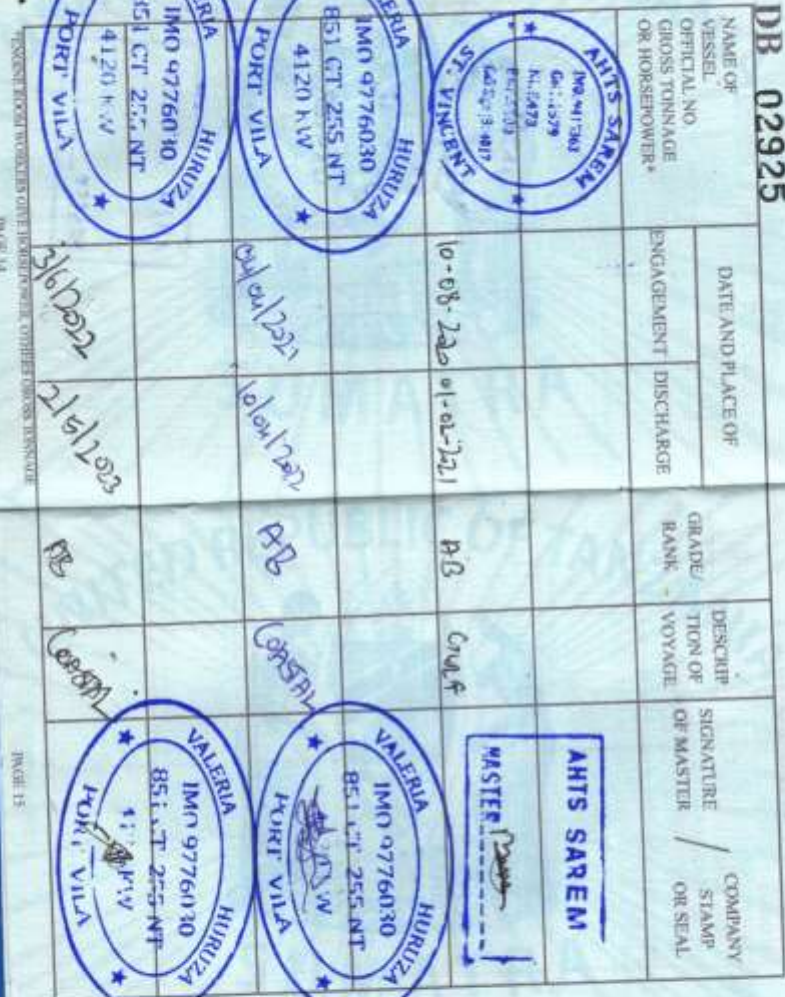 DB 02925
NAME OF VESSEL
OFFICIAL NO
GROSS TONNAGE
OR HORSEPOWER*
DATE AND PLACE OF
ENGAGEMENT
DISCHARGE
GRADE/
RANK
DESCRIP
TION OF
VOYAGE
SIGNATURE
OF MASTER
/
COMPANY
STAMP
OR SEAL
AHTS SAREM
ST. VINCENT
10-08-2020
01-02-2021
AB
GULF
AHTS SAREM
MASTER
ERIA HURUZA
IMO 9776030
851 GT 255 NT
4120 KW
PORT VILA
04/04/2021
10/04/2022
AB
COASTAL
VALERIA HURUZA
IMO 9776030
851 GT 255 NT
PORT VILA
RIA HURUZA
IMO 9776030
851 GT 255 NT
4120 KW
PORT VILA
3/6/2022
2/5/2023
AB
COASTAL
VALERIA HURUZA
IMO 9776030
PORT VILA
ROOM WORKERS GIVE HORSEPOWER, OTHERS GROSS TONNAGE
PAGE 14
PAGE 15